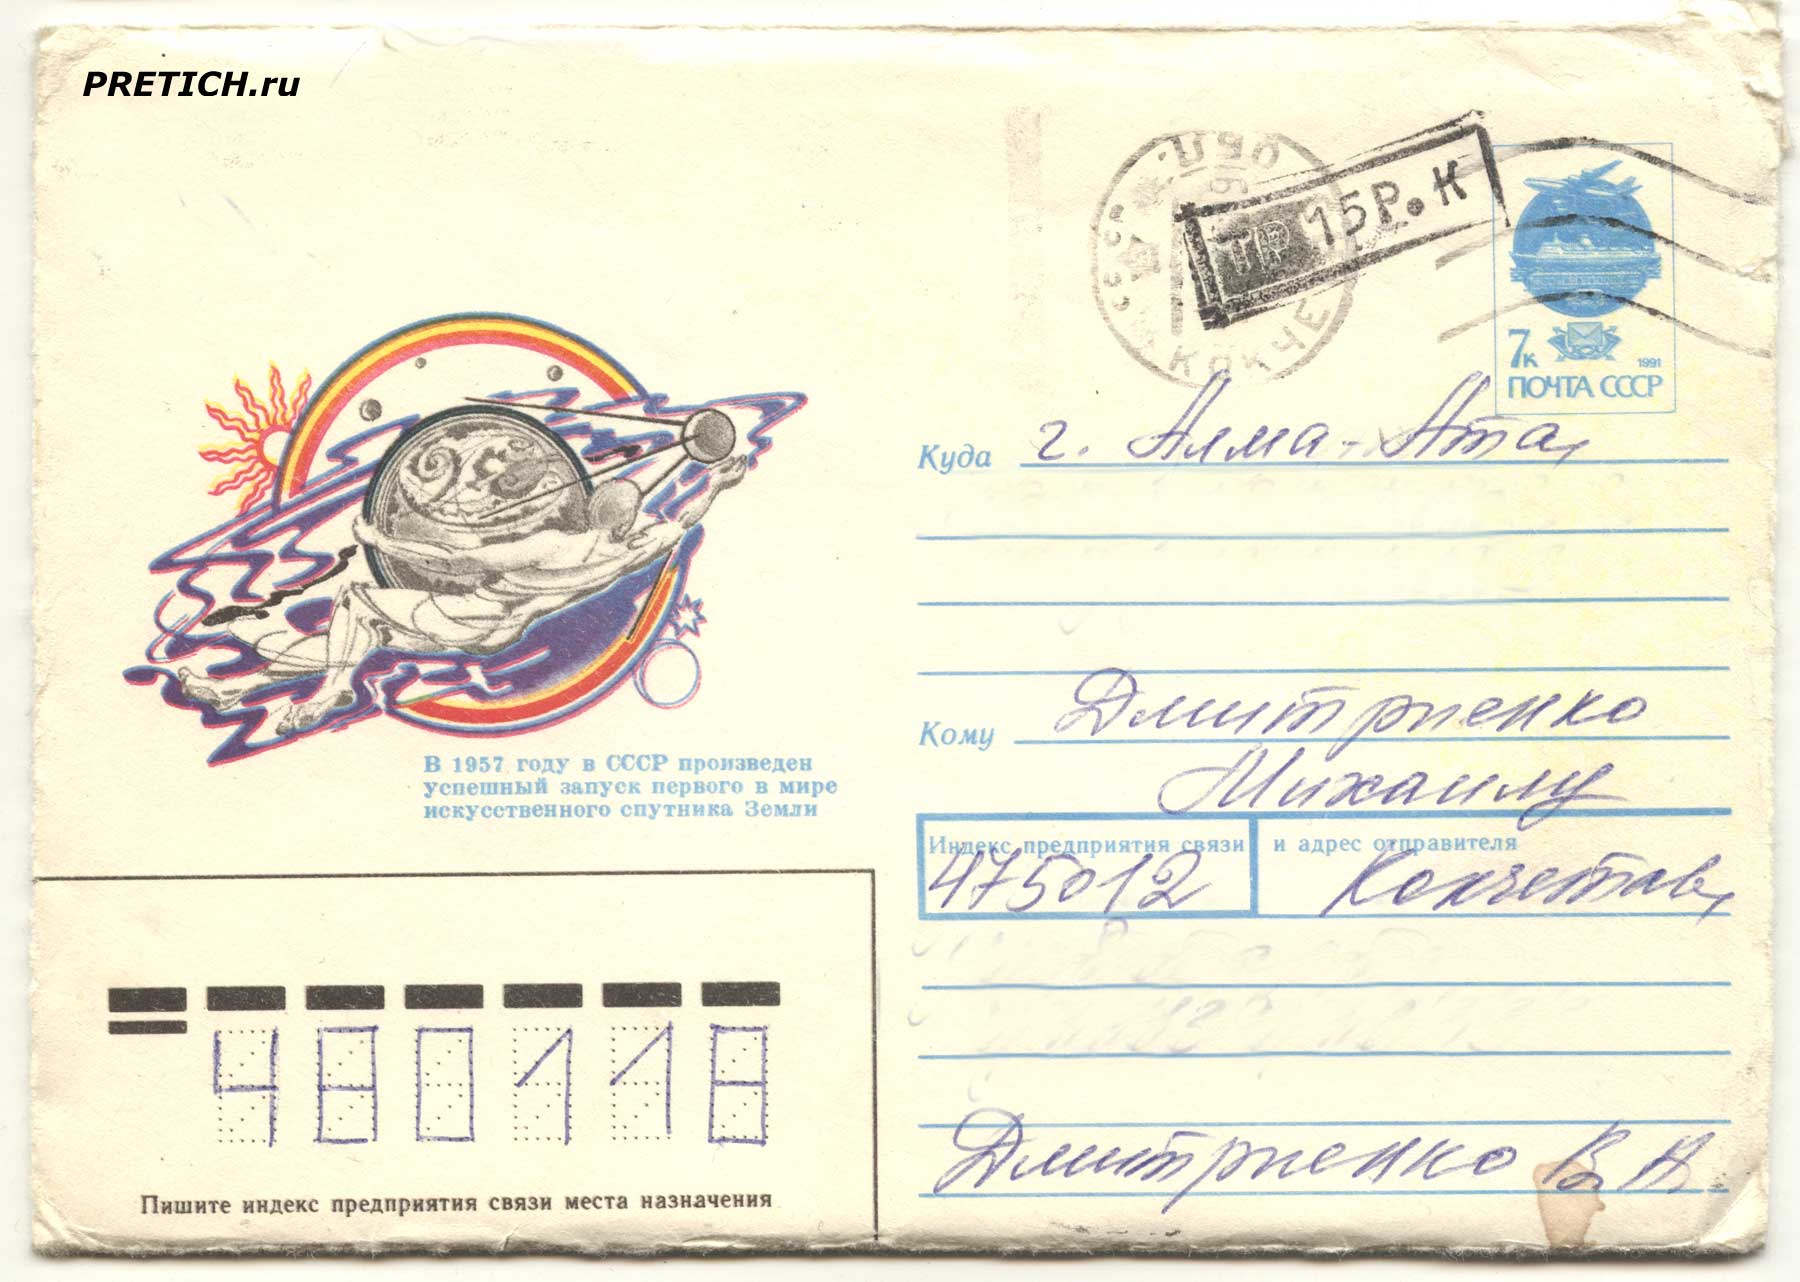 PRETICH.ru
КОКЧЕ
TP 15Р.К
7к
1991
ПОЧТА СССР
Куда г. Алма-Ата,
Кому Дмитриенко
Михаилу
В 1957 году в СССР произведен
успешный запуск первого в мире
искусственного спутника Земли
Индекс предприятия связи и адрес отправителя
475012 Кокчетав,
480118
Дмитриенко В Н
Пишите индекс предприятия связи места назначения